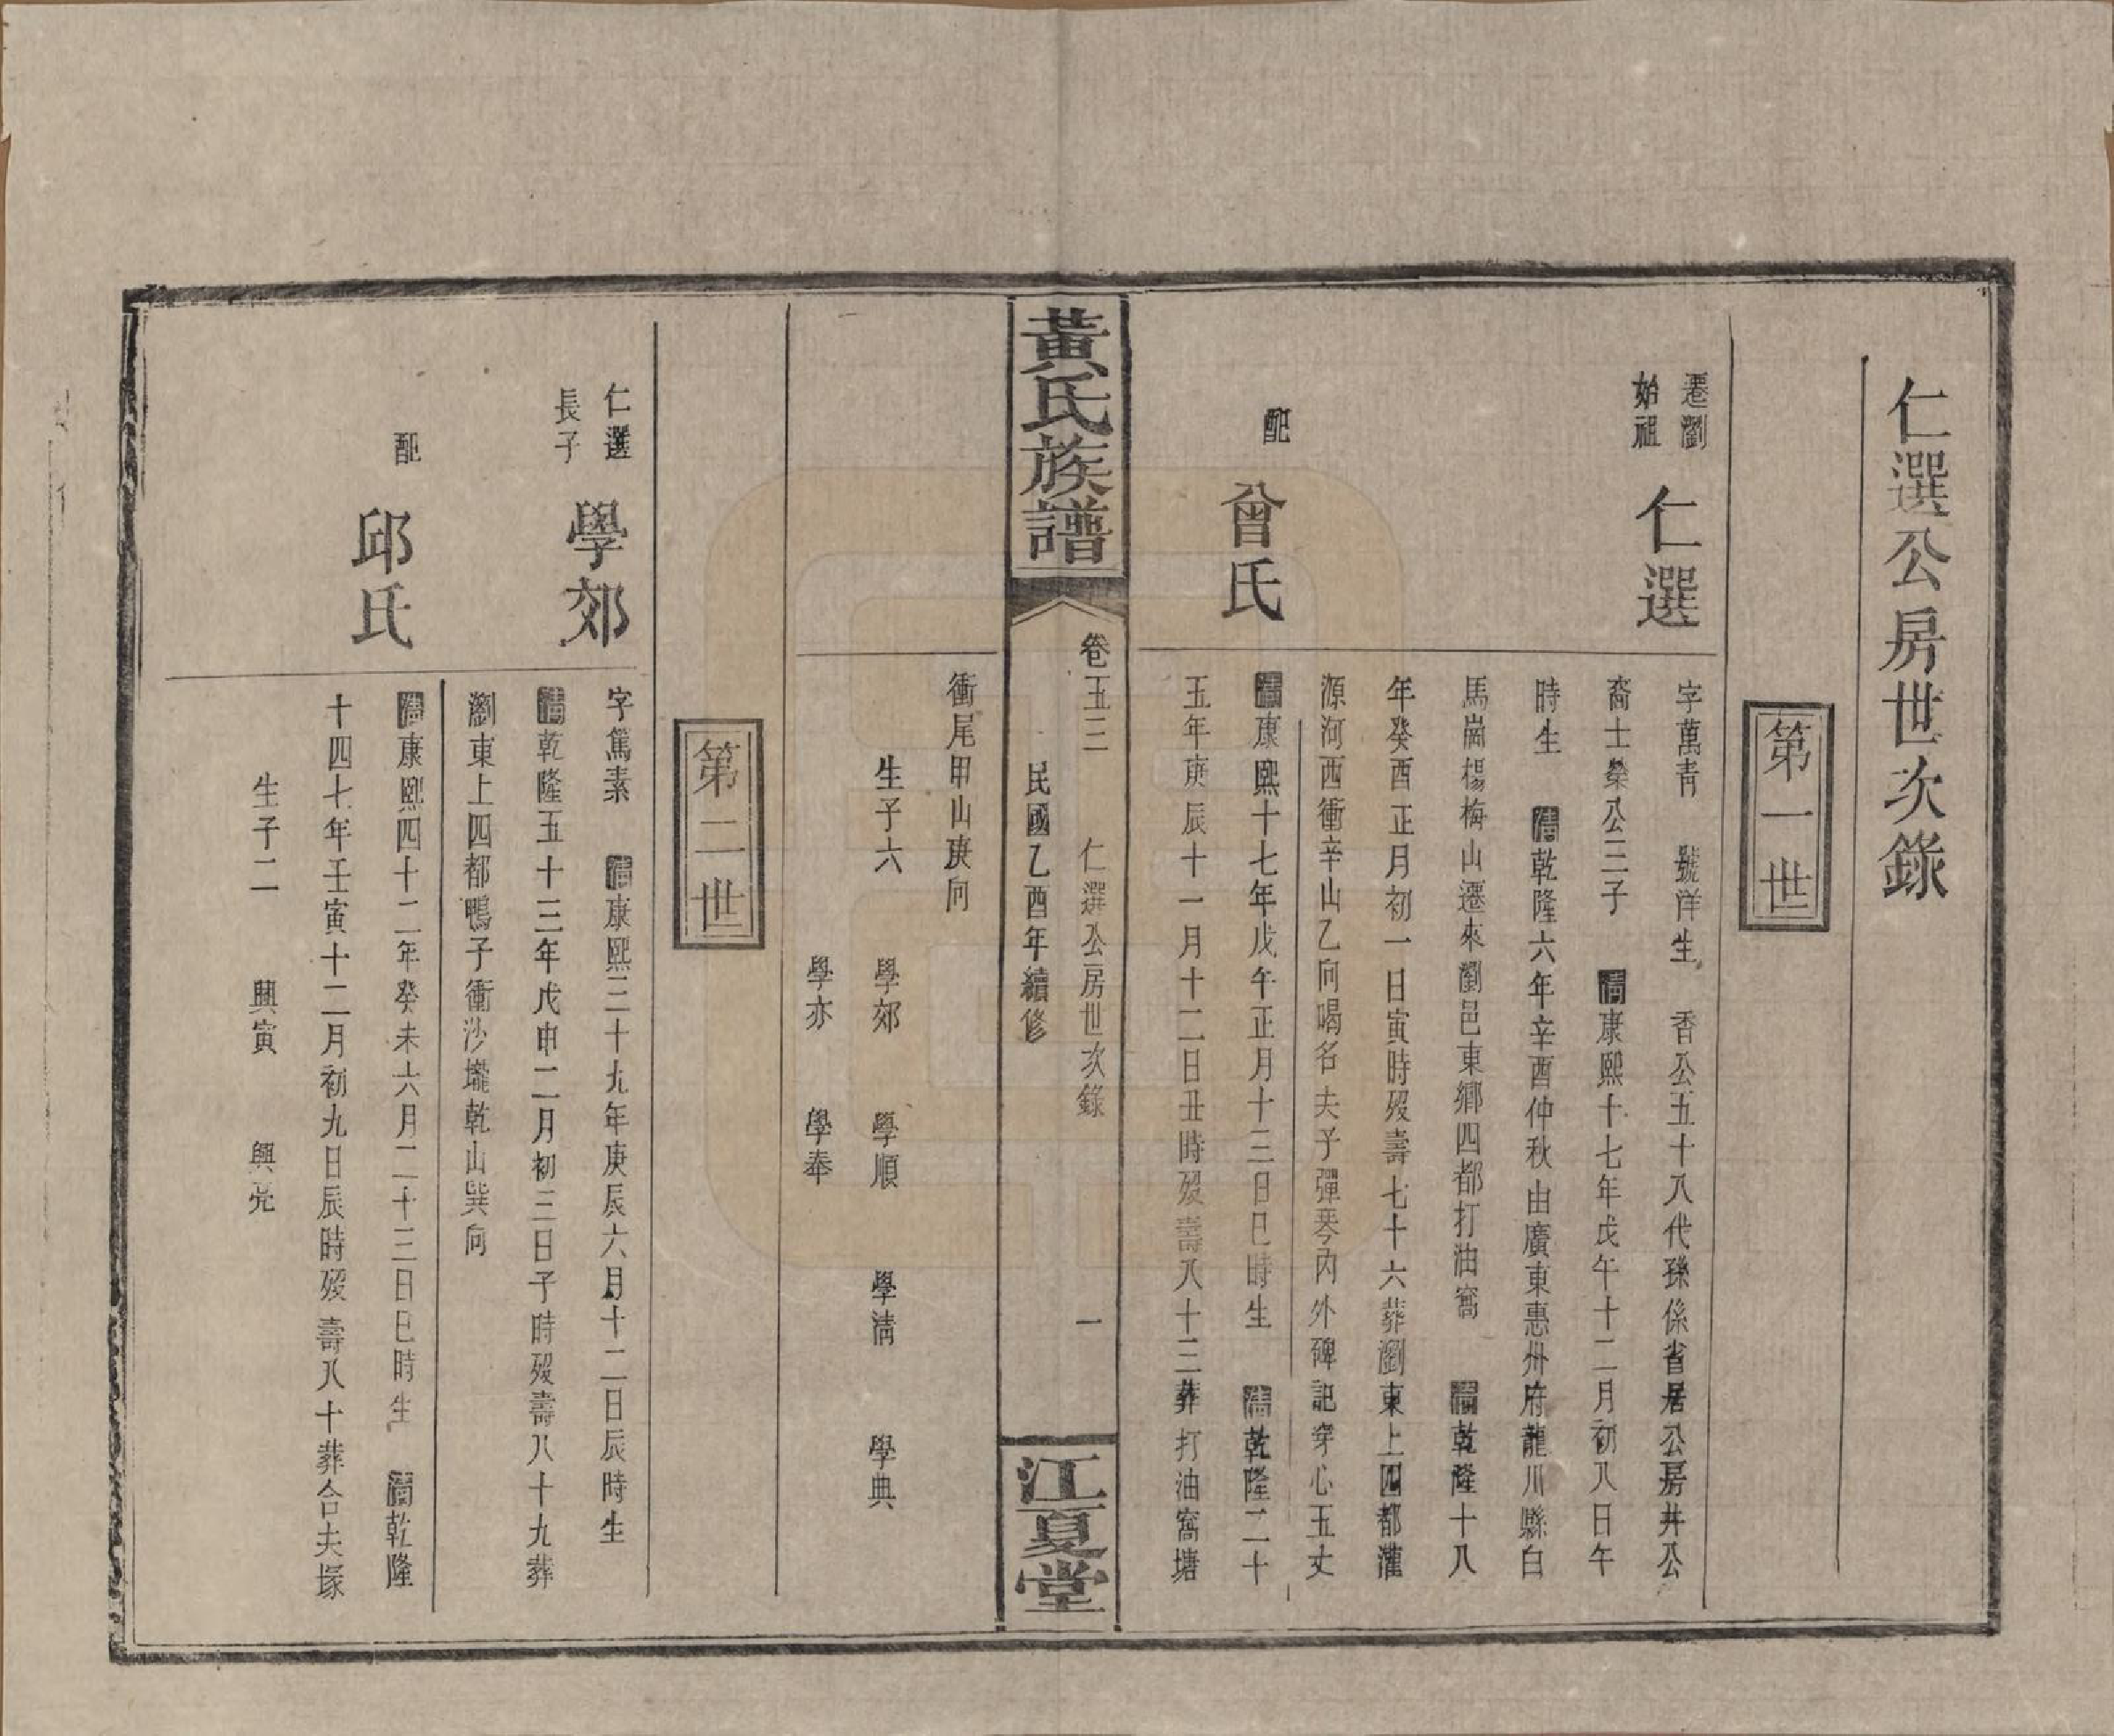 仁選公房世次錄
第一世
遷瀏
始祖
仁選
字萬青 號洋生 香公五十八代孫係省居公房井公
裔士榮公三子 清康熙十七年戊午十二月初八日午
時生 清乾隆六年辛酉仲秋由廣東惠州府龍川縣白
馬崗楊梅山遷來瀏邑東鄉四都打油窩 清乾隆十八
年癸酉正月初一日寅時歿壽七十六葬瀏東上四都灌
源河西衝辛山乙向喝名夫子彈琴內外碑記穿心五丈
配
曾氏
清康熙十七年戊午正月十三日巳時生 清乾隆二十
五年庚辰十一月十二日丑時歿壽八十三葬打油窩塘
黃氏族譜
卷五三
仁選公房世次錄
一
民國乙酉年續修
江夏堂
衝尾甲山庚向
生子六 學郊 學順 學清 學典
學亦 學奉
第二世
仁選
長子
學郊
字篤素 清康熙三十九年庚辰六月十二日辰時生
清乾隆五十三年戊申二月初三日子時歿壽八十九葬
瀏東上四都鴨子衝沙壠乾山巽向
配
邱氏
清康熙四十二年癸未六月二十三日巳時生 清乾隆
十四七年壬寅十二月初九日辰時歿壽八十葬合夫塚
生子二 興寅 興亮